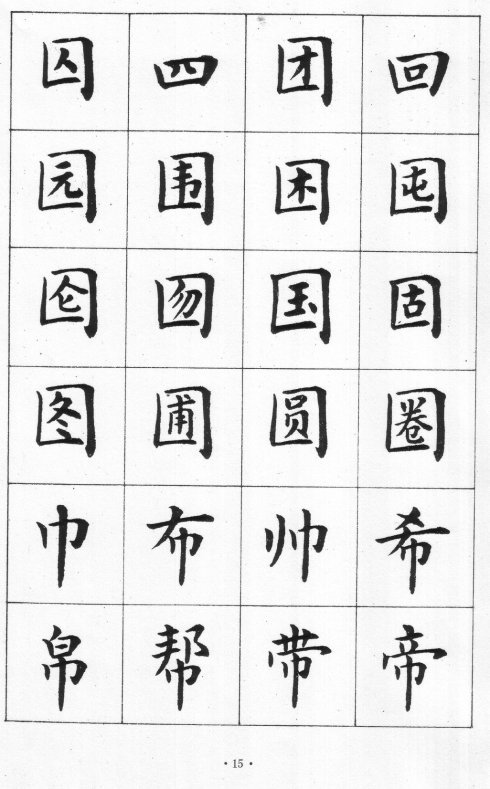 囚 四 团 回
园 围 困 囤
囵 囫 国 固
图 圃 圆 圈
巾 布 帅 希
帛 帮 带 帝
·15·